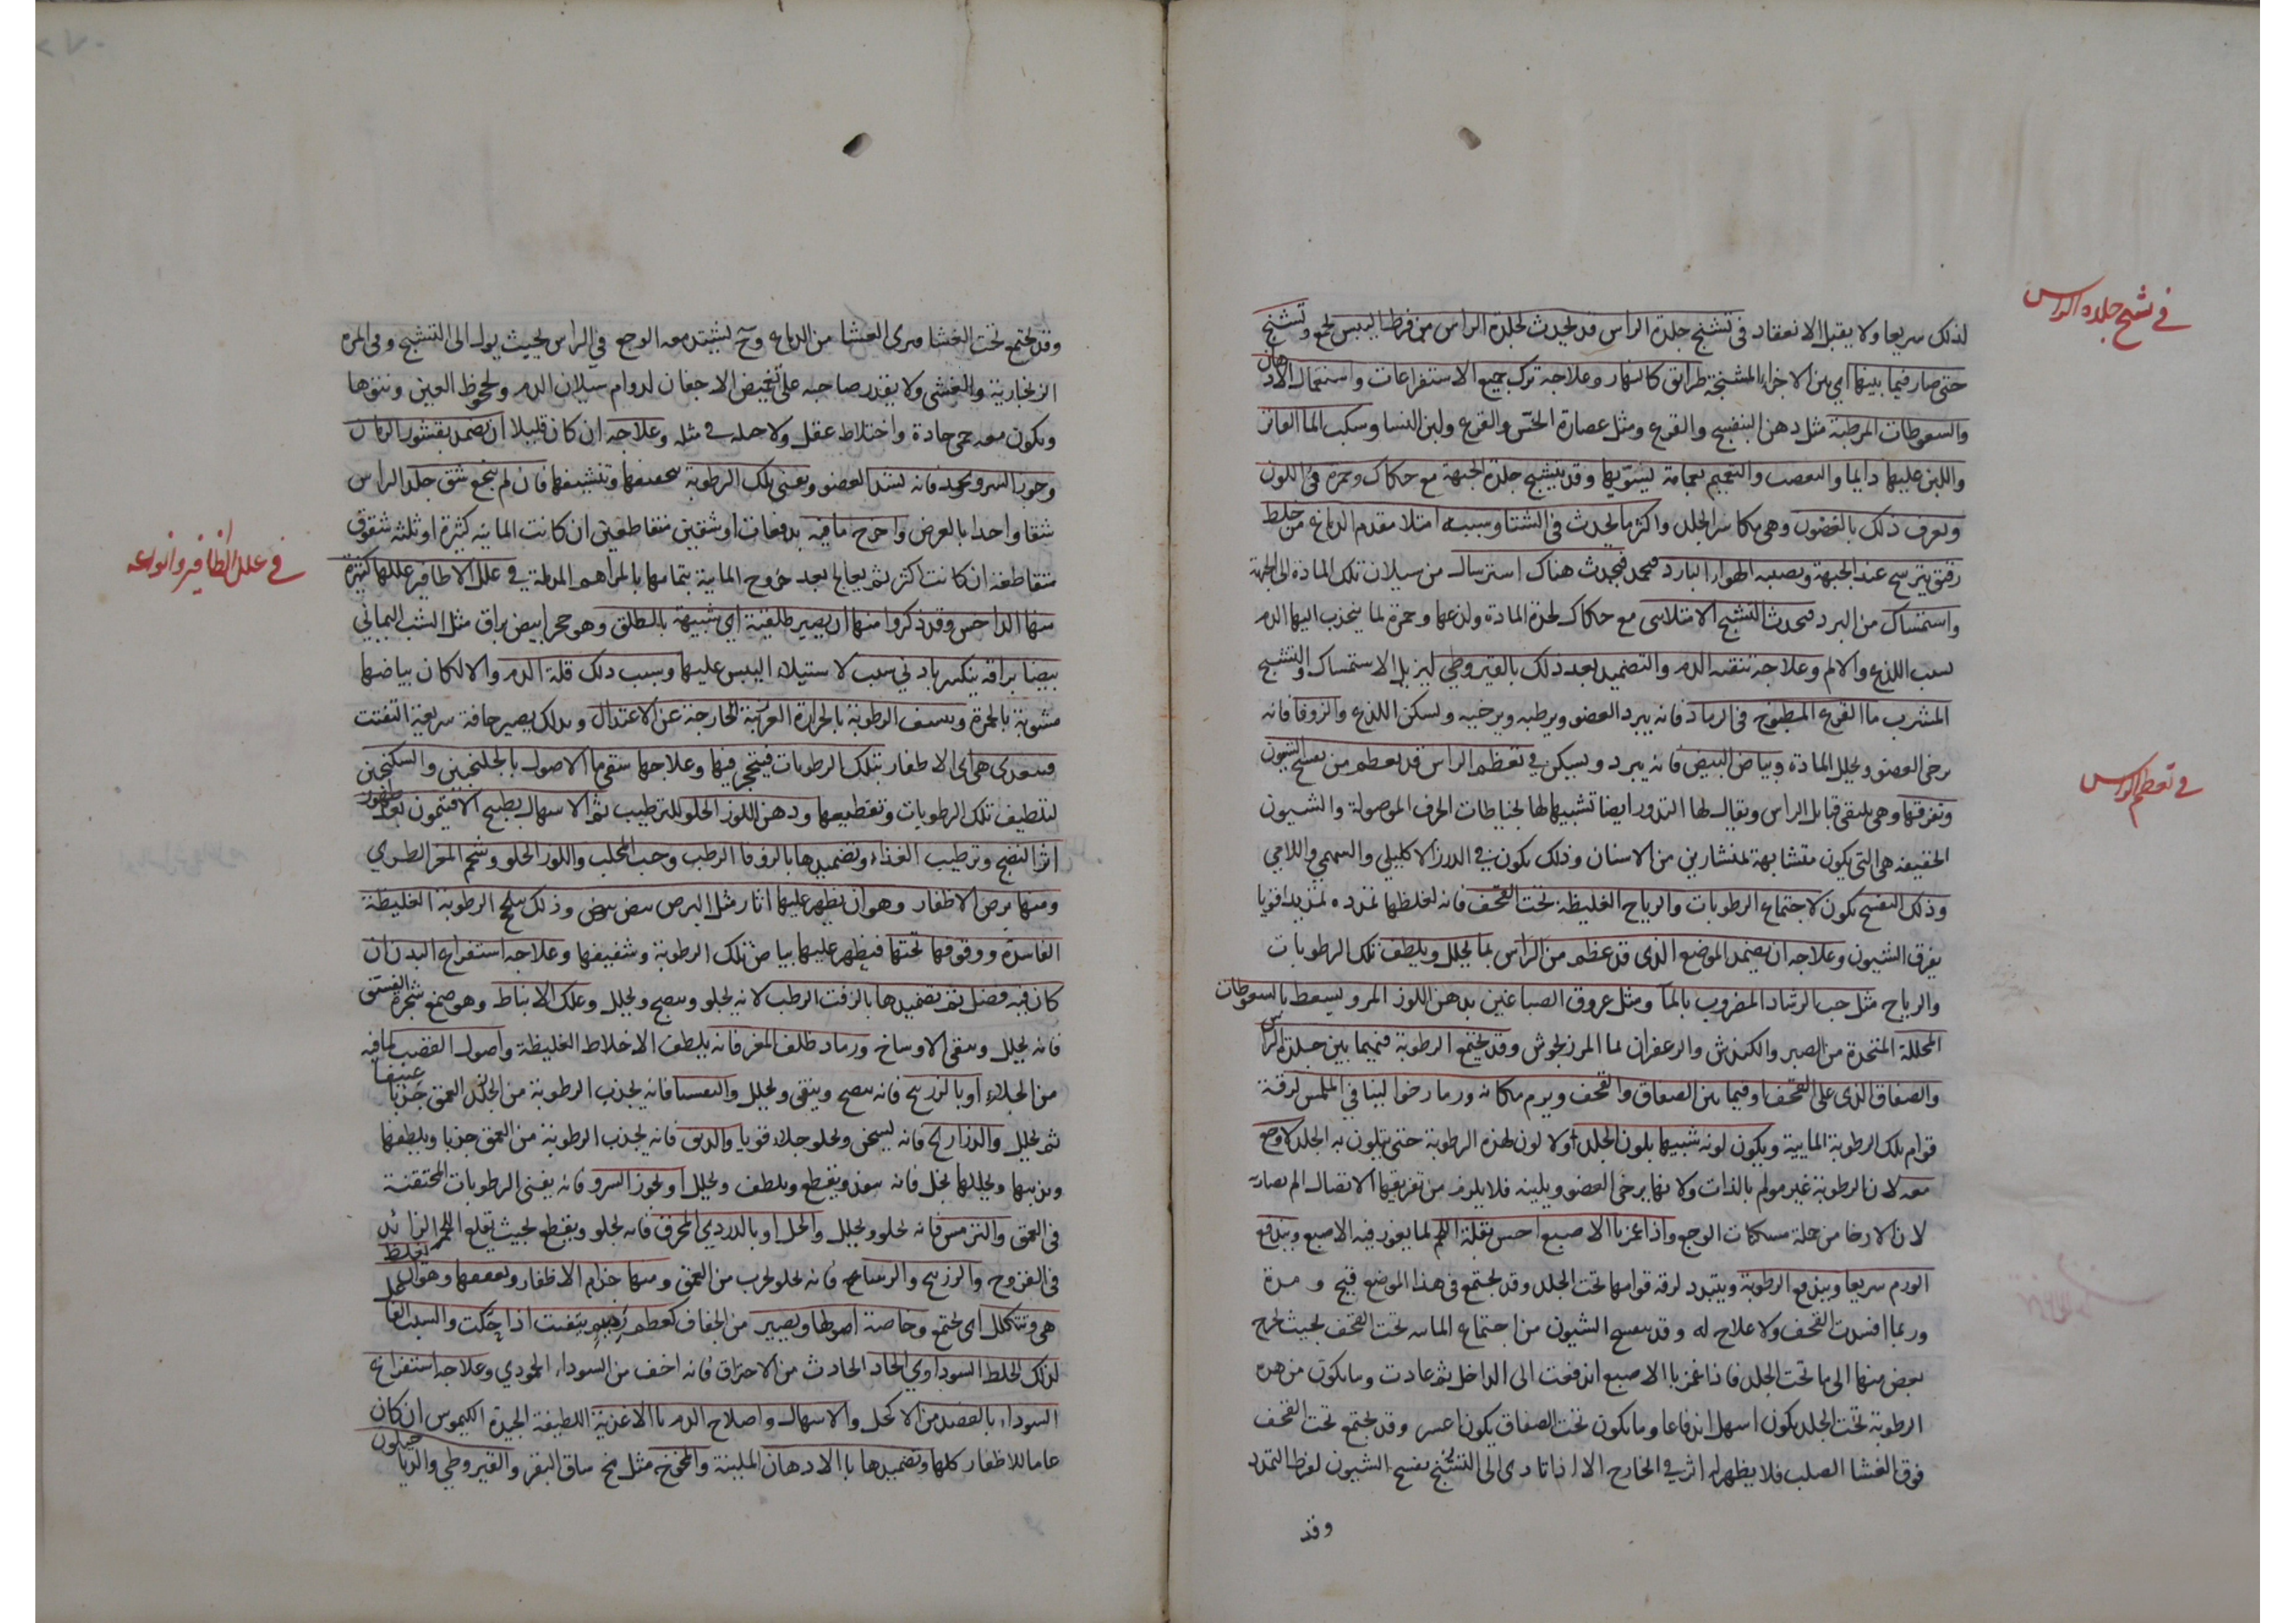 في تشنج جلدة الراس
لذلك سريعا ولا يقبل الانعقاد في تشنج جلدة الراس قد يحدث لجلدة الراس من فرط اليبس تجمع وتشنج
حتى صار فيما بينها اي بين الاجزاء المتشنجة طرائق كانهار وعلاجه ترك جميع الاستفراغات واستعمال الادهان
والسعوطات المرطبة مثل دهن البنفسج والقرع ومثل عصارة الخس والقرع ولبن النسا وسكب الما الفاتر
واللبن عليها دايما والتعصب والتعميم بعمامة ليسويها وقد يتشنج جلدة الجبهة مع حكاك وحمرة في اللون
ويعرف ذلك بالغضون وهي مكاسر الجلد واكثر ما يحدث في الشتا وسببه امتلا مقدم الدماغ من خلط
رقيق يترشح عند الجبهة ويصيبه الهوا البارد فيجمد فيحدث هناك استرسال من سيلان تلك المادة الى الجبهة
واستمساك من البرد فيحدث التشنج الامتلاسى مع حكاك لحدة المادة ولذعها وحمرة لما ينجذب اليها الدم
بسبب اللذع والالم وعلاجه تنقيه الدم والتضميد بعد ذلك بالقيروطي ليزيل الاستمساك والتشنج
المشرب ما القرع المطبوخ في الرماد فانه يبرد العضو ويرطبه ويرخيه ويسكن اللذع والزوفا فانه
يرخى العضو ويحلل المادة وبياض البيض فانه يبرد ويسكن في تعظم الراس قد يعظم من تفسخ الشيون
في تعظم الراس
وتفرقها وهي ملتقى قبايل الراس ويقال لها الدروز ايضا تشبيها لها بخياطات الخرف الموصولة والشيون
الحقيقه هي التي يكون متشابهة لمنشارين من الاسنان وذلك يكون في الدرز الاكليلي والسهمي واللامي
وذلك التفسخ يكون لاجتماع الرطوبات والرياح الغليظة تحت القحف فانه لغلظها تمدده تمديدا قويا
يفرق الشيون وعلاجه ان يضمد الموضع الذي قد عظم من الراس بما يحلل ويلطف تلك الرطوبات
والرياح مثل حب الرشاد المضروب بالماء ومثل عروق الصباغين بدهن اللوز المر ويسعط بالسعوطات
المحللة المتخذة من الصبر والكندش والزعفران بما المرزنجوش وقد يجتمع الرطوبة فيما بين جلدة الراس
والصفاق الذي على القحف او فيما بين الصفاق والقحف ويرم مكانه ورما رخوا لينا في الملمس لرقة
قوام تلك الرطوبة المايية ويكون لونه شبيها بلون الجلد اولا لون لهذه الرطوبة حتى يتلون به الجلد ولا وجع
معه لان الرطوبة غير مولم بالذات ولانها يرخى العضو ويلينه فلا يلزم من تفريقها الاتصال الم يصاد
لان الارخا من جملة مسكنات الوجع واذا غمز بالاصبع احس بقلة الم لما يغور فيه الاصبع ويندفع
الورم سريعا ويندفع الرطوبة ويتبدد لرقه قوامها تحت الجلد وقد يجتمع في هذا الموضع قيح و مدة
وربما افسدت القحف ولا علاج له وقد يتفسخ الشيون من اجتماع الماييه تحت القحف بحيث يخرج
بعض منها الى ما تحت الجلد فاذا غمز بالاصبع اندفعت الى الداخل ثم عادت وما يكون من هذه
الرطوبة تحت الجلد يكون اسهل اندفاعا وما يكون تحت الصفاق يكون اعسر وقد يجتمع تحت القحف
فوق الغشا الصلب فلا يظهر له اثر في الخارج الا اذا تادى الى التشنج بفسخ الشيون لفرط التمدد
وقد
وقد يجتمع تحت الغشا ويرى الغشا من الدماغ وح يشتد معه الوجع في الراس بحيث يول الى التشنج وفي المره
الزنجارية والغشى ولا يقدر صاحبه على تغميض الاجفان لدوام سيلان الدم ولجحوظ العين ونتوها
ويكون معه حمى حادة واختلاط عقل ولا حيله في مثله وعلاجه ان كان قليلا ان يضمد بقشور الرمان
وجوز السرو فانه يشد العضو ويفنى تلك الرطوبة بتجفيفها وتنشيفها فان لم ينجع شق جلد الراس
شقا واحدا بالعرض واخرج ما فيه بدفعات او شقين متقاطعين ان كانت المائيه كثيرة او ثلثه شقوق
في علل الاظافير وانواعه
متقاطعة ان كانت اكثر ثم يعالج بعد خروج المايية بتمامها بالمراهم المدملة في علل الاظافير عللها كثيرة
منها الداخس وقد ذكروا منها ان يصير طلقية اي شبيهة بالطلق وهو حجر ابيض براق مثل الشب اليماني
بيضا براقه ينكسر بادني سبب لاستيلاء اليبس عليها وسبب ذلك قلة الدم والا لكان بياضها
مشوبة بالحمرة وبسبب الرطوبة بالحرارة الغريبة الخارجة عن الاعتدال وبذلك يصير جافة سريعة التفتت
فيغتذى هي اى الاظفار بتلك الرطوبات فيتحجر فيها وعلاجها سقي ما الاصول بالجلنجبين والسكنجبين
لتلطيف تلك الرطوبات وتقطيعها ودهن اللوز الحلو للترطيب ثم الاسهال بطبيخ الافتيمون بعد ظهور
اثر النضج وترطيب الغذاء وتضميدها بالزوفا الرطب وحب المحلب واللوز الحلو وشحم المعز الطري
ومنها برص الاظفار وهو ان يظهر عليها اثار مثل البرص بيض وذلك بلحج الرطوبة الغليظة
الفاسدة ووقوفها تحتها فيظهر عليها بياض تلك الرطوبة وشفيفها وعلاجه استفراغ البدن ان
كان فيه فضل ثم تضميدها بالزفت الرطب لانه يجلو وينضج ويحلل وعلك الانباط وهو صمغ شجرة الفستق
فانه يحلل وينقى الاوساخ ورماد ظلف المعز فانه يلطف الاخلاط الغليظة واصول القصب لما فيه
من الجلاء او بالزرنيخ فانه ينضج وينقى ويحلل والتفسيا فانه يجذب الرطوبة من الجلد العمق جذبا عنيفا
ثم يحلل والذراريح فانه يسخن ويجلو جلاء قويا والدبق فانه يجذب الرطوبة من العمق جذبا ويلطفها
ويذيبها ويحللها بخل فانه ينفذ ويقطع ويلطف ويحلل او بجوز السرو فانه يفنى الرطوبات المحتقنة
في العمق والترمس فانه يجلو ويحلل والخل او بالدردي المحرق فانه يجلو ويقطع بحيث يقلع اللحم الزائد
في القروح والزرنيخ والرسا فانه يجلو ويجذب من العمق ومنها جذام الاظفار وتعقفها وهو ان يغلظ
هي وتتكلل اى يجتمع وخاصة اصولها ويصير من الجفاف كعظم رميم يتفتت اذا حكت والسبب الفاعل
لذلك الخلط السوداوي الحاد الحادث من الاحتراق فانه اخف من السوداء الجمودي وعلاجه استفراغ
السوداء بالفصد من الاكحل والاسهال واصلاح الدم بالاغذية اللطيفة الجيدة الكيموس ان كان
عاما للاظفار كلها وتضميدها بالادهان الملينة والمخوخ مثل مخ ساق البقر والقيروطي والدياخيلون